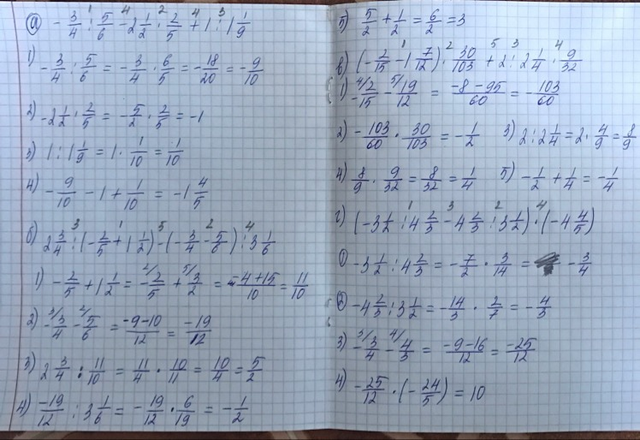 а) -3/4 : 5/6 - 2 1/2 · 2/5 + 1 : 1 1/9
1) -3/4 : 5/6 = -3/4 · 6/5 = -18/20 = -9/10
2) -2 1/2 · 2/5 = -5/2 · 2/5 = -1
3) 1 : 1 1/9 = 1 · 1/10 = 1/10
4) -9/10 - 1 + 1/10 = -1 4/5
б) 2 3/4 : (-2/5 + 1 1/2) - (-3/4 - 5/6) : 3 1/6
1) -2/5 + 1 1/2 = -2/5 + 3/2 = -4+15/10 = 11/10
2) -3/4 - 5/6 = -9-10/12 = -19/12
3) 2 3/4 : 11/10 = 11/4 · 10/11 = 10/4 = 5/2
4) -19/12 : 3 1/6 = -19/12 · 6/19 = -1/2
5) 5/2 + 1/2 = 6/2 = 3
в) (-2/15 - 1 7/12) · 30/103 + 2 : 2 1/4 · 9/32
1) -2/15 - 19/12 = -8-95/60 = -103/60
2) -103/60 · 30/103 = -1/2 3) 2 : 2 1/4 = 2 · 4/9 = 8/9
4) 8/9 · 9/32 = 8/32 = 1/4 5) -1/2 + 1/4 = -1/4
г) (-3 1/2 : 4 2/3 - 4 2/3 : 3 1/2) · (-4 4/5)
1) -3 1/2 : 4 2/3 = -7/2 · 3/14 = -3/4
2) -4 2/3 : 3 1/2 = -14/3 · 2/7 = -4/3
3) -3/4 - 4/3 = -9-16/12 = -25/12
4) -25/12 · (-24/5) = 10